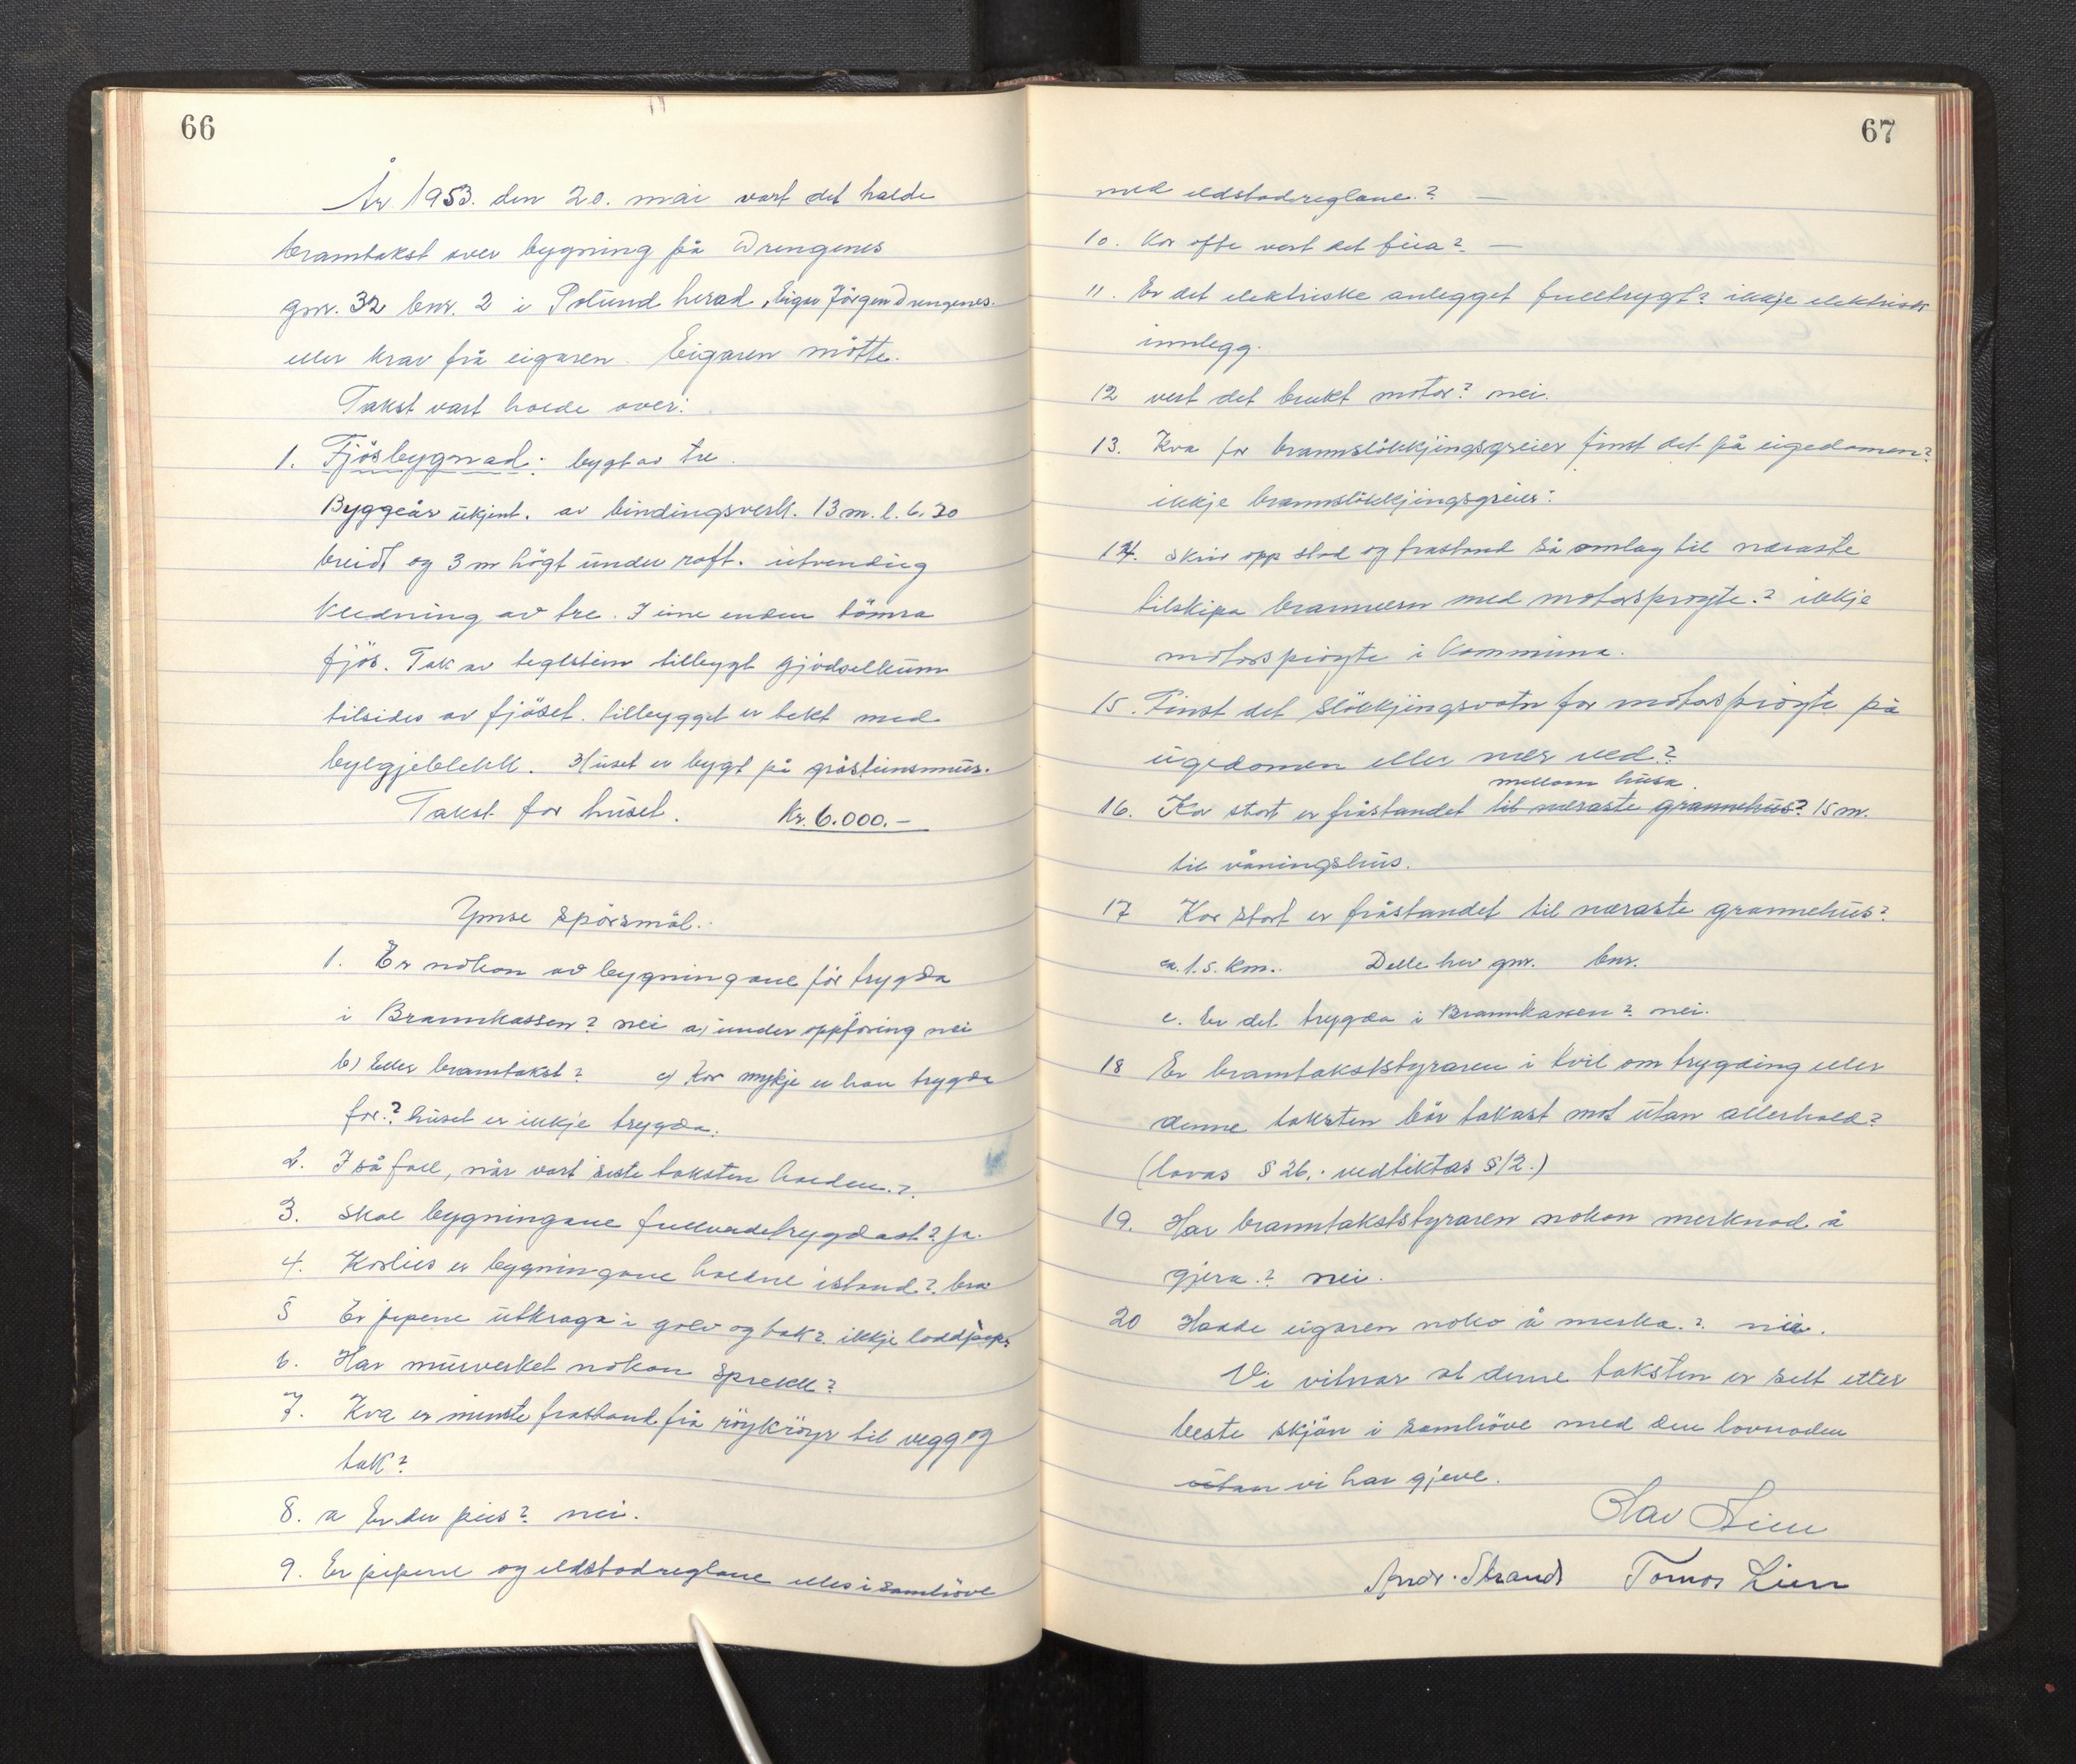 66
År 1953. den 20. mai vart det halde
branntakst over bygning på Drengenes
gnr. 32 bnr. 2 i Solund herad, Eigar Jörgen Drengenes.
etter krav frå eigaren. Eigaren mötte.
Takst vart halde over:
1. Fjösbygnad: bygt av tre.
Byggeår ukjent. av bindingsverk. 13 m. l. 6.30
breidt og 3 m högt under raft. utvendig
kledning av tre. I eine enden tömra
fjös. Tak av teglstein tilbygt gjödselkum
tilsides av fjöset. tilbygget er tekt med
bylgjeblekk. Huset er bygt på gråsteinsmur.
Takst for huset. Kr. 6.000.-
Ymse spörsmål.
1. Er nokon av bygningane för trygda
i Brannkassen? nei a) under oppföring nei
b) Eller branntakst? c) Kor mykje er han trygda
for.? huset er ikkje trygda.
2. I så fall, når vart siste taksten halden.?
3. Skal bygningane fullverdetrygdast? Ja.
4. Korleis er bygningane haldne istand? bra
5 Er pipene utkraga i golv og tak? ikkje loddpipe.
6. Har murverket nokon sprekk?
7. Kva er minste frastand frå röykröyr til vegg og
tak?
8. a Er der peis? nei.
9. Er pipene og eldstadreglane elles i samhöve
67
med eldstadreglane.? —
10. Kor ofte vert det feia? —
11. Er det elektriske anlegget fulltrygt? ikkje elektrisk
innlegg.
12 vert det brukt motor? nei.
13. Kva for brannslökkjingsgreier finst det på eigedomen?
ikkje brannslökkjingsgreier.
14. Skriv opp stad og frastand så omlag til næraste
tilskipa brannvern med motorsprøyte.? ikkje
motorsprøyte i kommuna.
15. Finst det slökkjingsvatn for motorsprøyte på
eigedomen eller nær ved?
mellom husa.
16. Kor stort er fråstandet til næraste grannehus? 15 m.
til våningshus.
17 Kor stort er fråstandet til næraste grannehus?
ca. 1.5. km. Dette hev gnr. bnr.
c. Er det trygda i Brannkassen? nei.
18 Er branntakststyraren i tvil om trygding eller
denne taksten bör takast mot utan atterhald?
(lovas § 26.. vedtiktas § 12.)
19. Har branntakststyraren nokon merknad å
gjera.? nei.
20 Hadde eigaren noko å merka.? nei.
Vi vitnar at denne taksten er sett etter
beste skjön i samhöve med den lovnaden
utan vi har gjeve.
Olav Lien
Andr. Strand Tomas Lien